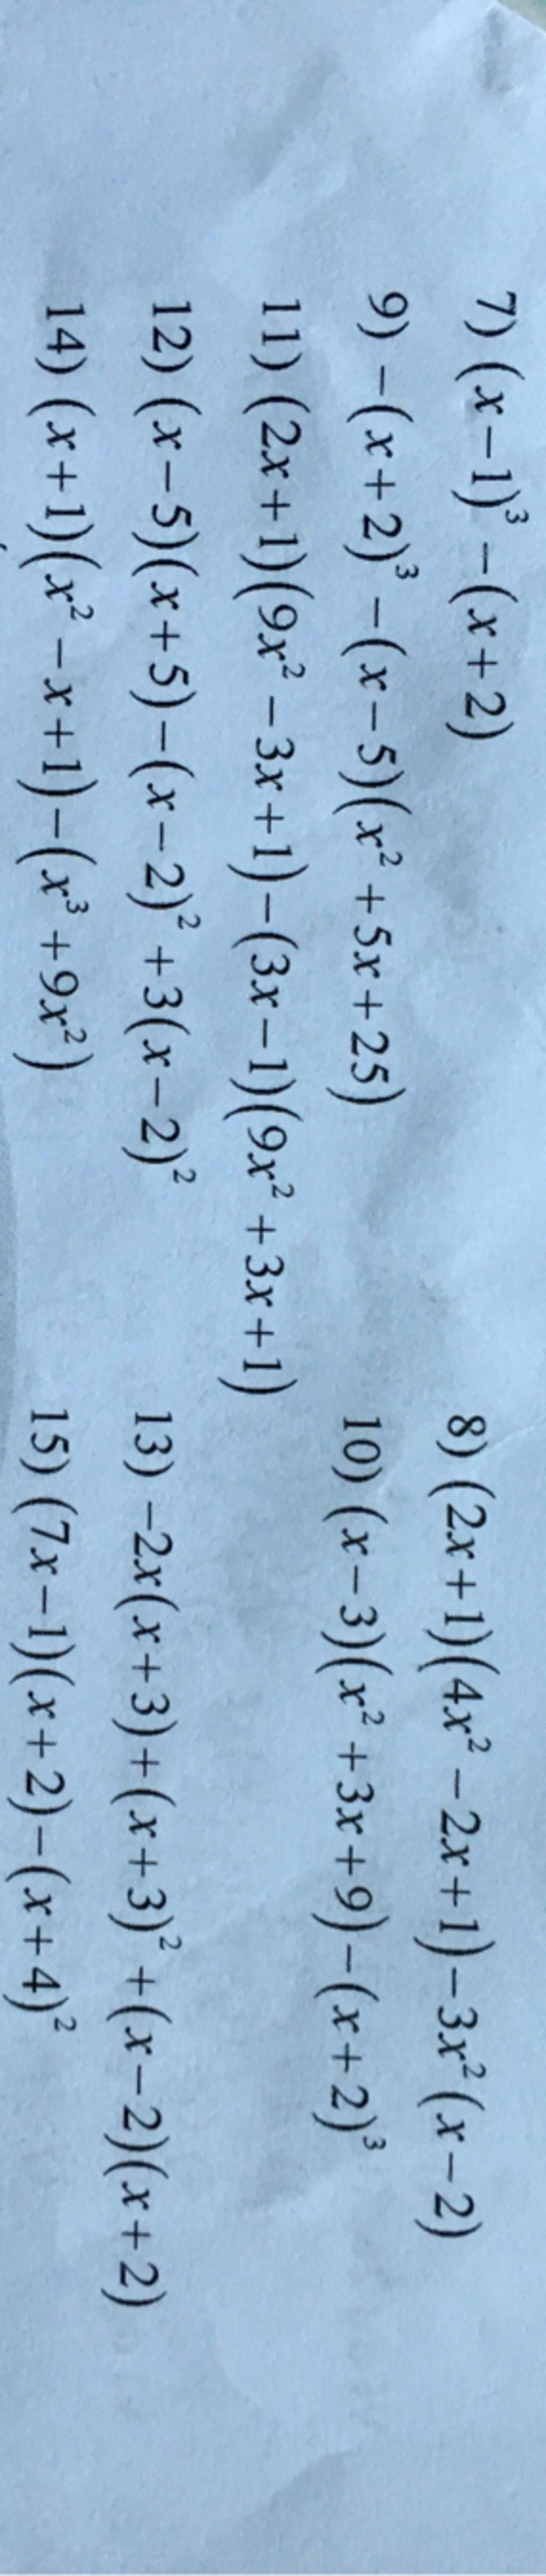 7) (x−1)³−(x+2)
8) (2x+1)(4x²−2x+1)−3x²(x−2)
9) −(x+2)³−(x−5)(x²+5x+25)
10) (x−3)(x²+3x+9)−(x+2)³
11) (2x+1)(9x²−3x+1)−(3x−1)(9x²+3x+1)
12) (x−5)(x+5)−(x−2)²+3(x−2)²
13) −2x(x+3)+(x+3)²+(x−2)(x+2)
14) (x+1)(x²−x+1)−(x³+9x²)
15) (7x−1)(x+2)−(x+4)²